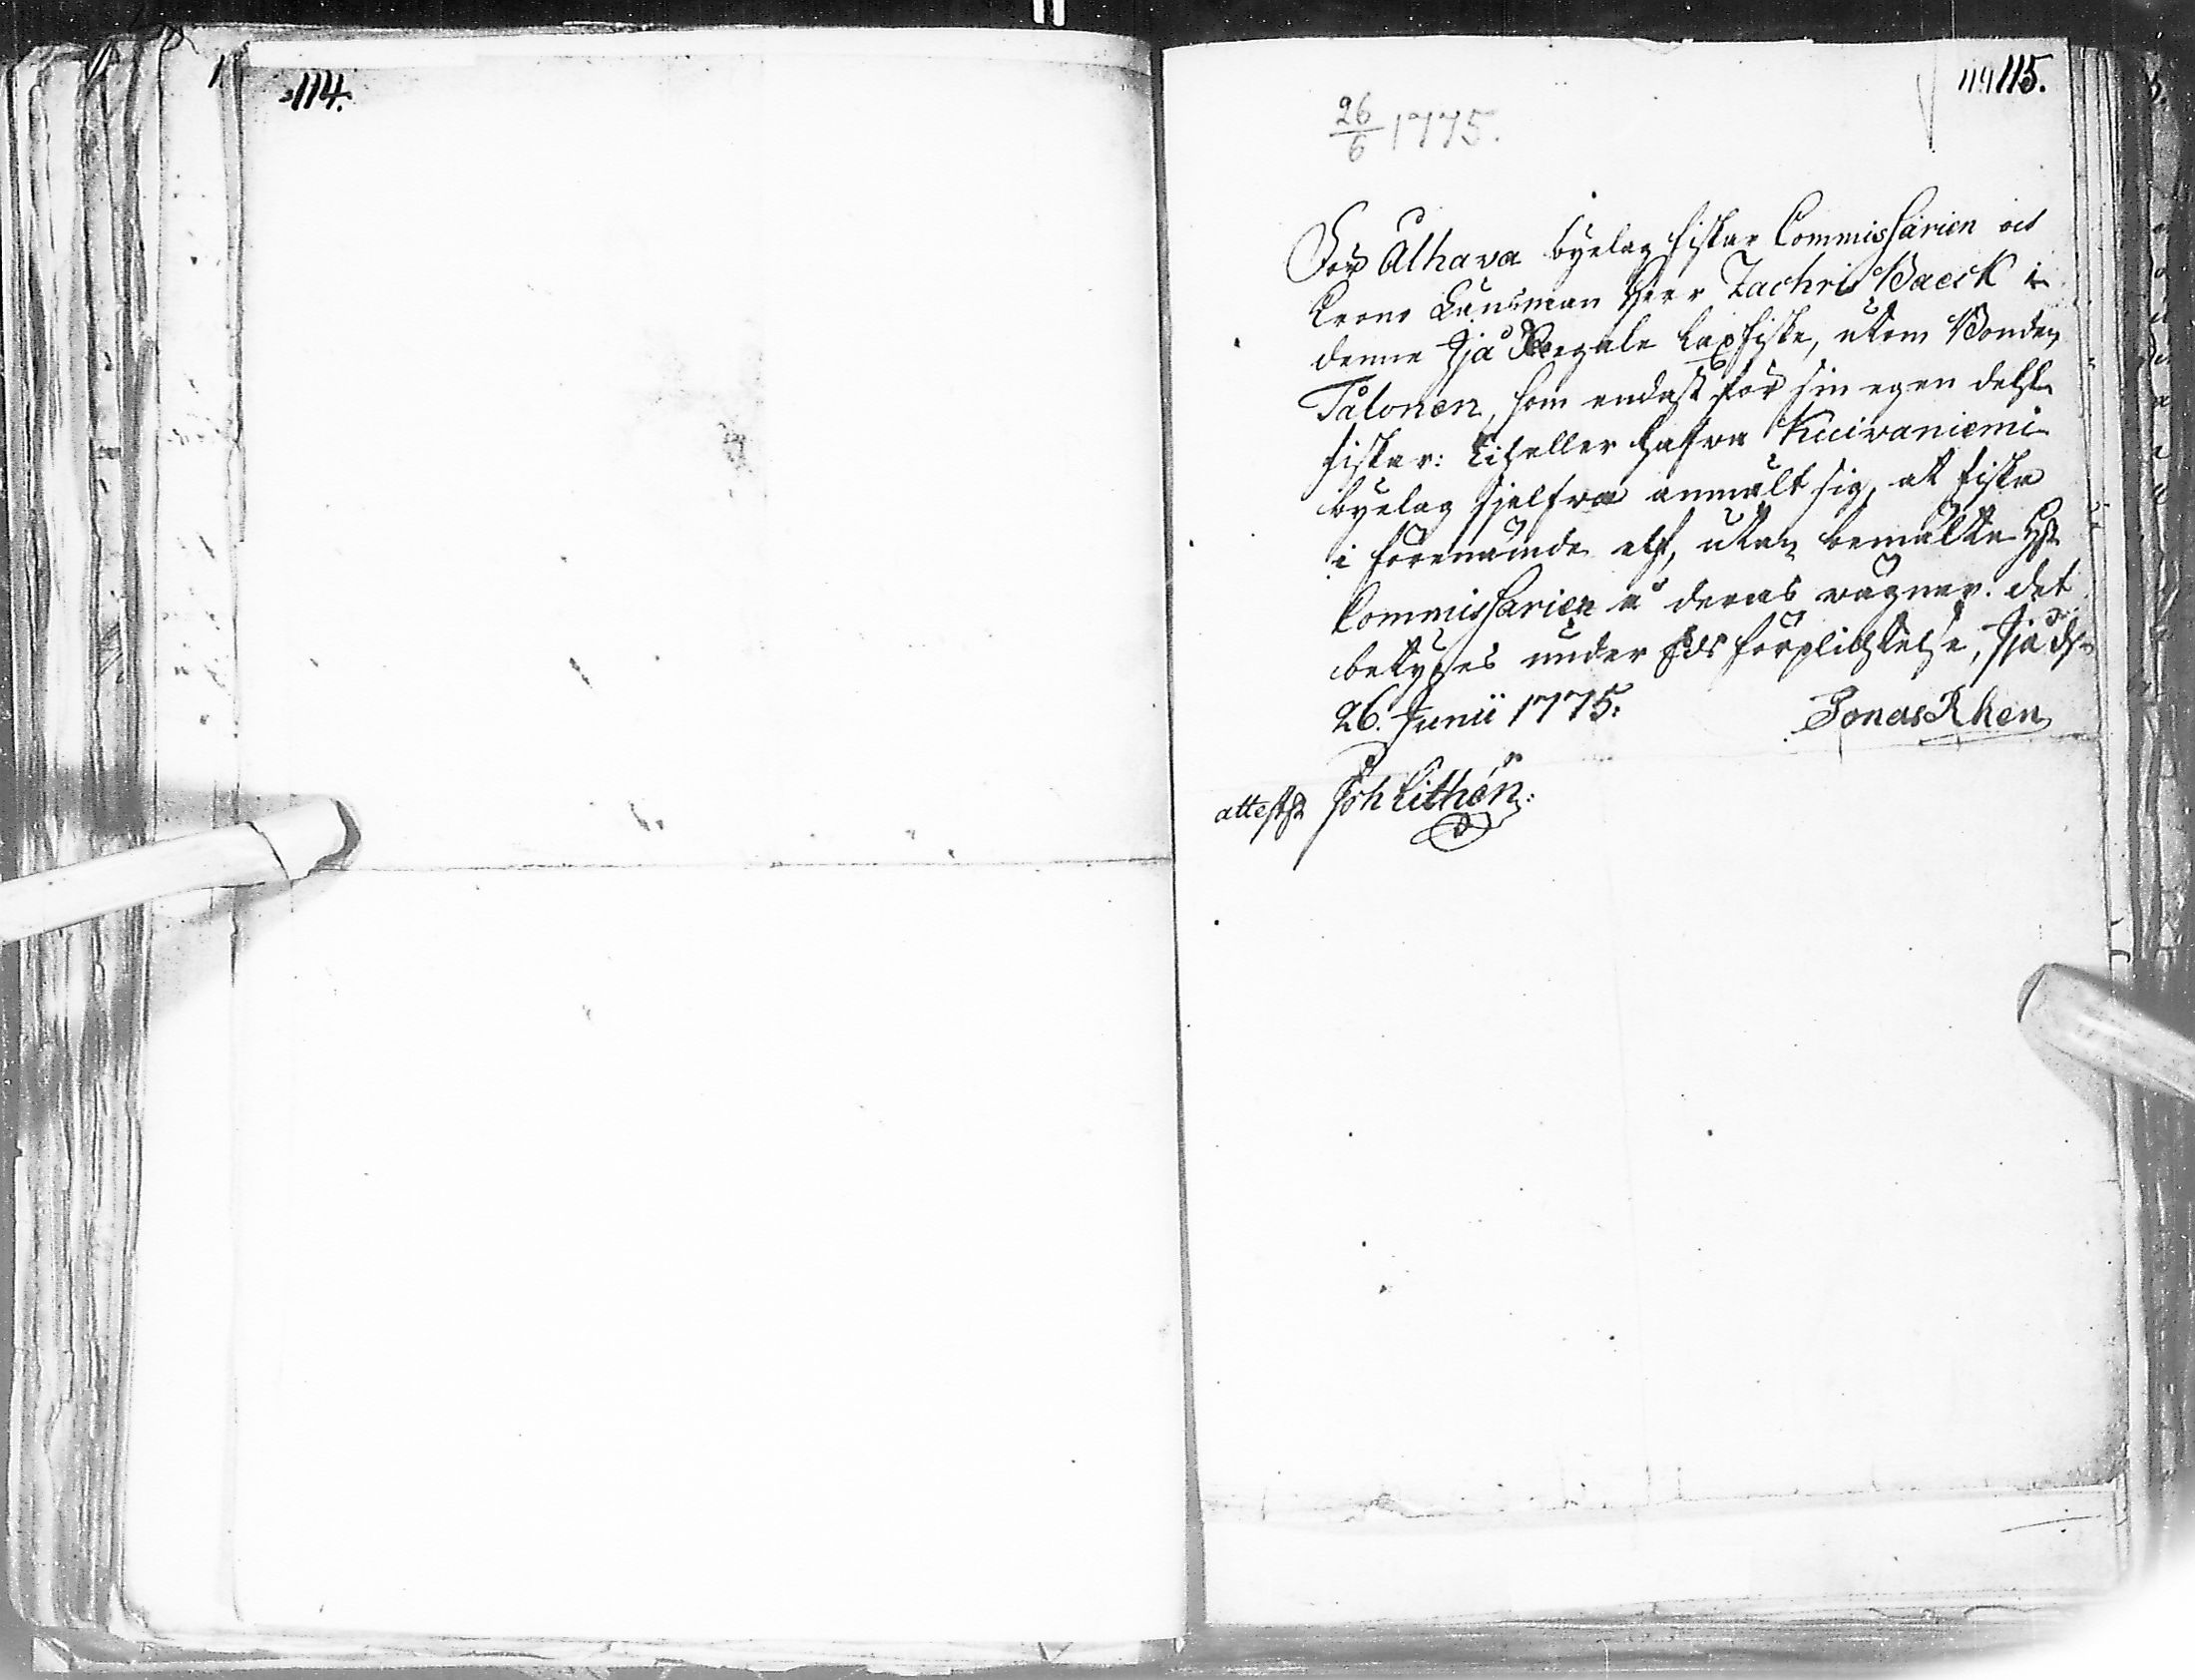 114.
114 115.
26/6 1775.
För Alhava byelag fiskar Commissarien och
Crono Länsman Herr Zachris Baeck i
denne Ijå Regale laxfiske, utom Bonden
Tålonen, som endast för sin egen dehl
fiskar: Ei heller hafwa Kuiwaniemi
byelag sjelfwa anmält sig, at fiska
i förenämnde elf, utan bemälte Hr
Commissarien å deras wägnar. det
betyges under Eds förplichtelse, Ijå d.
26. Junii 1775. Jonas Rhen
attest. Joh Lithén.